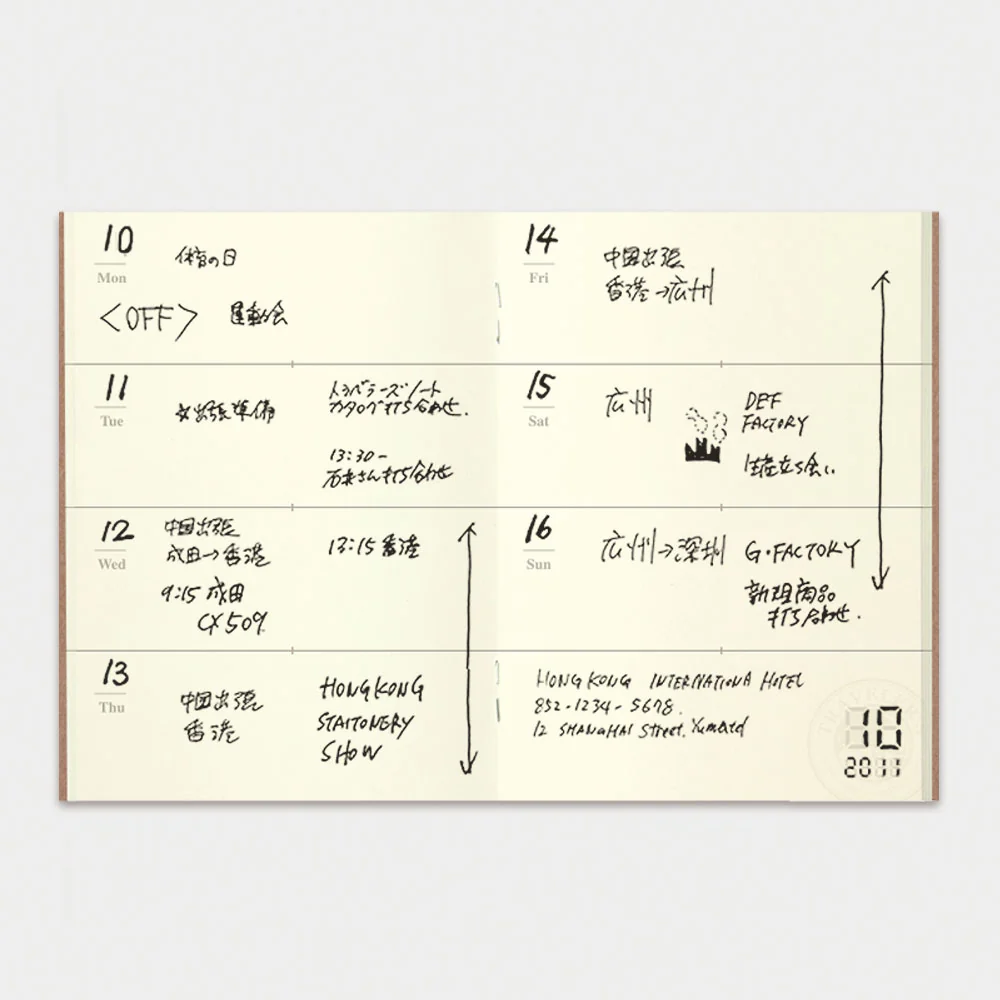 10
Mon
体育の日
<OFF> 運動会
11
Tue
☆出張準備
トラベラーズノート
カタログ打ち合わせ.
13:30-
石来さん打ち合わせ
12
Wed
中国出張
成田→香港
9:15 成田
CX509
13:15 香港
13
Thu
中国出張
香港
HONG KONG
STAITONERY
SHOW
14
Fri
中国出張
香港→広州
15
Sat
広州
DEF
FACTORY
生産立ち会い
16
Sun
広州→深圳
G・FACTORY
新規商品
打ち合わせ.
HONG KONG INTERNATIONA HOTEL
852-1234-5678.
12 SHANGHAI Street, Yumatd
10
2011